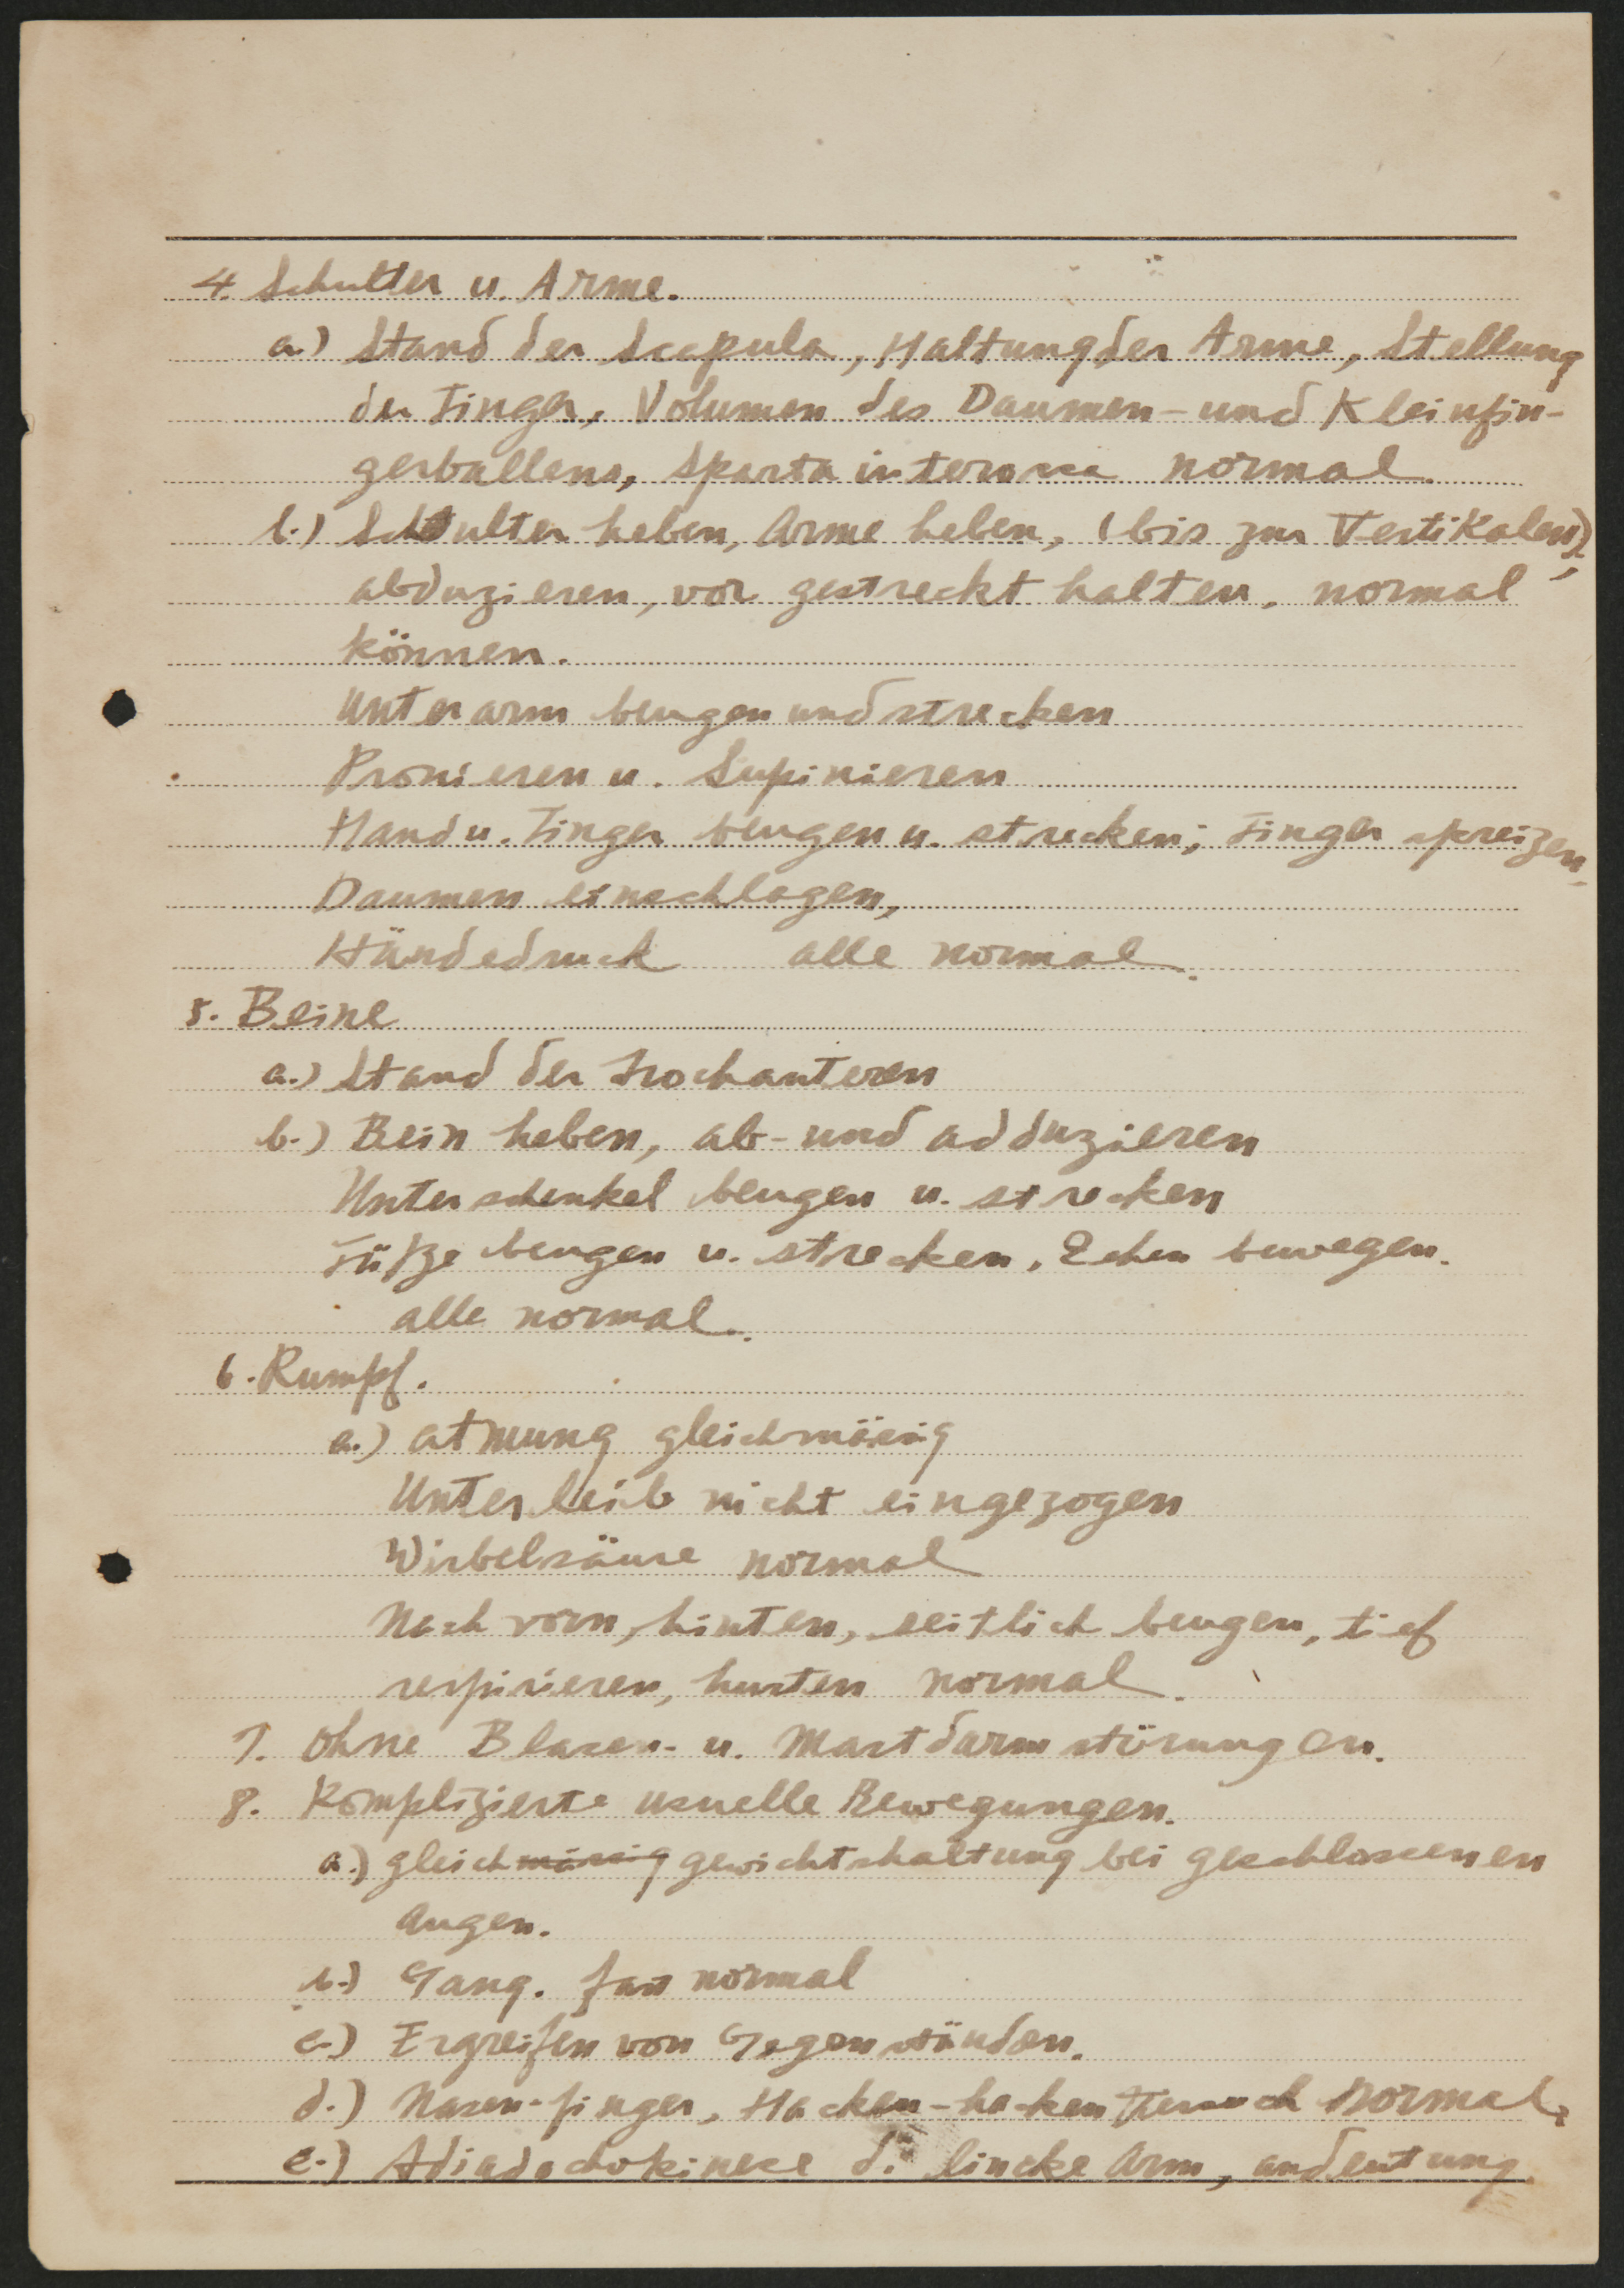 4. Schulter u. Arme.
a.) Stand der Scapula, Haltung der Arme, Stellung
der Finger, Volumen des Daumen- und Kleinfin-
gerballens, Sparta interossea normal.
b.) Schulter heben, Arme heben, (bis zur Vertikalen),
abduzieren, vor gestreckt halten, normal
können.
Unterarm beugen und strecken
Pronieren u. Supinieren
Hand u. Finger beugen u. strecken; Finger spreizen
Daumen einschlagen,
Händedruck alle normal.
5. Beine
a.) Stand der Trochanteren
b.) Bein heben, ab- und adduzieren
Unterschenkel beugen u. strecken
Füße beugen u. strecken, Zehen bewegen.
alle normal.
6. Rumpf.
a.) Atmung gleichmäsig
Unterleib nicht eingezogen
Wirbelsäure normal
Nach vorn, hinten, seitlich beugen, tief
respirieren, husten normal.
7. Ohne Blasen- u. Mastdarmstörungen.
8. Komplizierte usuelle Bewegungen.
a.) gleichmässig gewichtshaltung bei geschlossenen
Augen.
b.) Gang. fast normal
c.) Ergreifen von Gegenständen.
d.) Nasen-finger, Hacken-hacken Versuch normal.
e.) Adiadochokinese d. lincke Arm, andeutung.